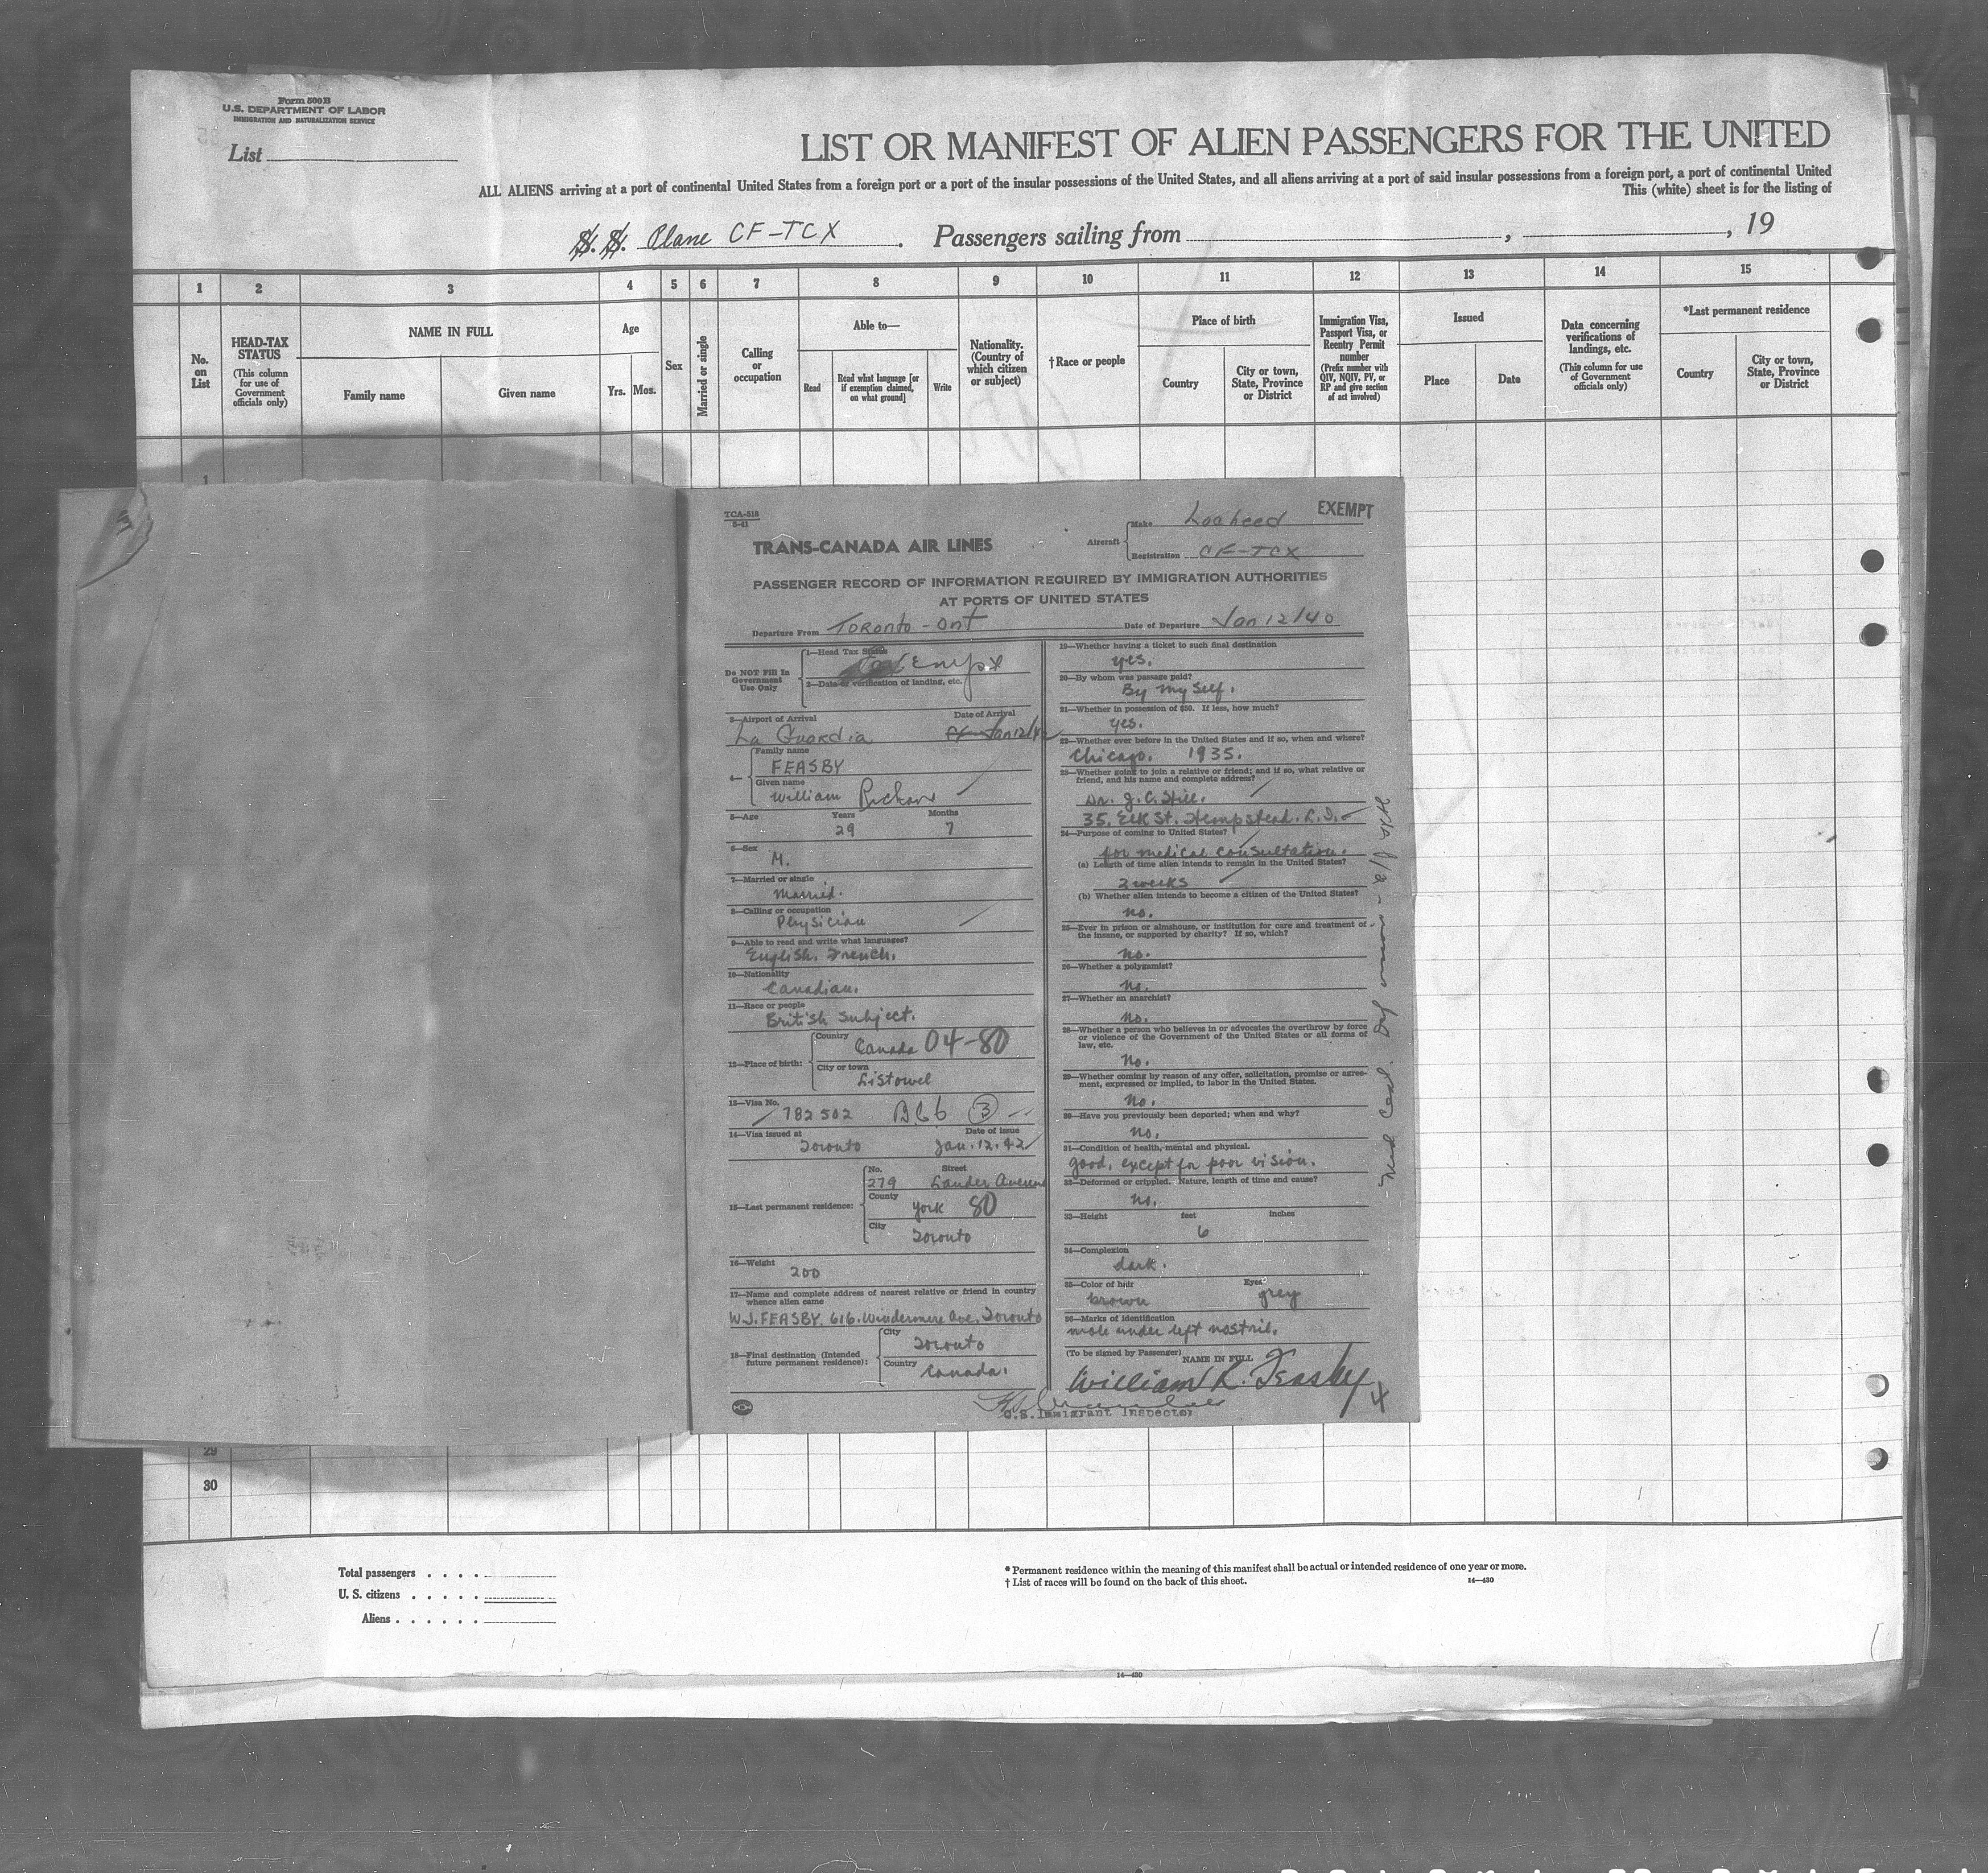 Form 500 B
U.S. DEPARTMENT OF LABOR
IMMIGRATION AND NATURALIZATION SERVICE
List
LIST OR MANIFEST OF ALIEN PASSENGERS FOR THE UNITED
ALL ALIENS arriving at a port of continental United States from a foreign port or a port of the insular possessions of the United States, and all aliens arriving at a port of said insular possessions from a foreign port, a port of continental United
This (white) sheet is for the listing of
S. S. Plane CF-TCX. Passengers sailing from , , 19
1 2 3 4 5 6 7 8 9 10 11 12 13 14 15
No. on List
HEAD-TAX STATUS (This column for use of Government officials only)
NAME IN FULL
Family name Given name
Age
Yrs. Mos.
Sex
Married or single
Calling or occupation
Able to—
Read Read what language [or if exemption claimed, on what ground] Write
Nationality. (Country of which citizen or subject)
†Race or people
Place of birth
Country City or town, State, Province or District
Immigration Visa, Passport Visa, or Reentry Permit number (Prefix number with QIV, NQIV, PV, or RP and give section of act involved)
Issued
Place Date
Data concerning verifications of landings, etc. (This column for use of Government officials only)
*Last permanent residence
Country City or town, State, Province or District
1
TCA-518
5-41
EXEMPT
TRANS-CANADA AIR LINES
Aircraft Make Loaheed
Registration CF-TCX
PASSENGER RECORD OF INFORMATION REQUIRED BY IMMIGRATION AUTHORITIES
AT PORTS OF UNITED STATES
Departure From Toronto - Ont Date of Departure Jan 12/40
Do NOT Fill In Government Use Only
1—Head Tax Status
Exempt
2—Data or verification of landing, etc.
3—Airport of Arrival Date of Arrival
La Guardia Jan 12/42
4— Family name
FEASBY
Given name
William Richard
5—Age Years Months
29 7
6—Sex
M.
7—Married or single
Married.
8—Calling or occupation
Physician
9—Able to read and write what languages?
English. French.
10—Nationality
Canadian.
11—Race or people
British Subject.
12—Place of birth: Country
Canada 04-80
City or town
Listowel
13—Visa No.
782502 B66 3
14—Visa issued at Date of issue
Toronto Jan. 12. 42
15—Last permanent residence: No. Street
279 Lauder Avenue
County
York 80
City
Toronto
16—Weight
200
17—Name and complete address of nearest relative or friend in country whence alien came
W.J. FEASBY. 616. Windermere Ave. Toronto
18—Final destination (Intended future permanent residence): City
Toronto
Country
Canada.
19—Whether having a ticket to such final destination
yes.
20—By whom was passage paid?
By my self.
21—Whether in possession of $50. If less, how much?
yes.
22—Whether ever before in the United States and if so, when and where?
Chicago. 1935.
23—Whether going to join a relative or friend; and if so, what relative or friend, and his name and complete address?
Dr. J. C. Hill.
35. Elk St. Hempstead. L.I.
24—Purpose of coming to United States?
for medical consultation.
(a) Length of time alien intends to remain in the United States?
2 weeks
(b) Whether alien intends to become a citizen of the United States?
no.
25—Ever in prison or almshouse, or institution for care and treatment of the insane, or supported by charity? If so, which?
no.
26—Whether a polygamist?
no.
27—Whether an anarchist?
no.
28—Whether a person who believes in or advocates the overthrow by force or violence of the Government of the United States or all forms of law, etc.
no.
29—Whether coming by reason of any offer, solicitation, promise or agreement, expressed or implied, to labor in the United States.
no.
30—Have you previously been deported; when and why?
no.
31—Condition of health, mental and physical.
good, except for poor vision.
32—Deformed or crippled. Nature, length of time and cause?
no.
33—Height feet inches
6
34—Complexion
dark.
35—Color of hair Eyes
brown grey
36—Marks of identification
mole under left nostril.
(To be signed by Passenger) NAME IN FULL
William R. Feasby
U.S. Immigrant Inspector
29
30
Total passengers
U. S. citizens
Aliens
* Permanent residence within the meaning of this manifest shall be actual or intended residence of one year or more.
† List of races will be found on the back of this sheet.
14—430
14—430